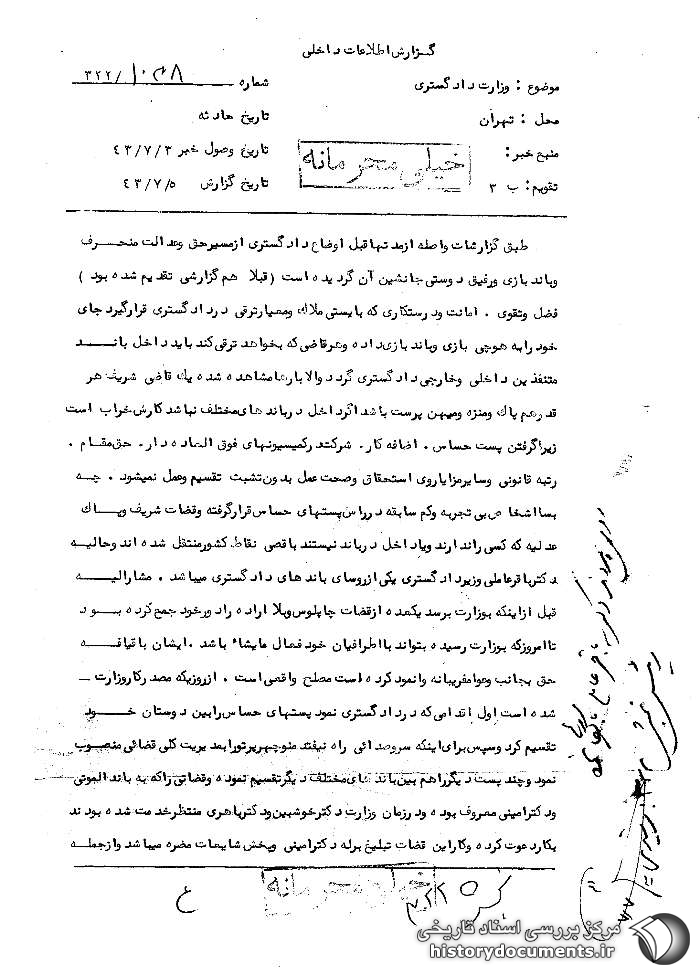 گزارش اطلاعات داخلی
موضوع : وزارت دادگستری
شماره ۳۲۲/
محل : تهران
تاریخ حادثه
منبع خبر :
تاریخ وصول خبر ۴۳/۷/۳
تقویم : ب ۳
تاریخ گزارش ۴۳/۷/۵
خیلی محرمانه
طبق گزارشات واصله از مدتها قبل اوضاع دادگستری از مسیر حق و عدالت منحرف
و باند بازی و رفیق دوستی جانشین آن گردیده است ( قبلا هم گزارشی تقدیم شده بود )
فضل و تقوی . امانت و درستکاری که بایستی ملاك و معیار ترقی در دادگستری قرار گیرد جای
خود را به هوچی بازی و باند بازی داده و هر قاضی که بخواهد ترقی کند باید داخل باند
متنفذین داخلی و خارجی دادگستری گردد والا بارها مشاهده شده یك قاضی شریف هر
قدر هم پاك و منزه و میهن پرست باشد اگر داخل در باند های مختلف نباشد کارش خراب است
زیرا گرفتن پست حساس . اضافه کار . شرکت در کمیسیونهای فوق العاده دار . حق مقام .
رتبه قانونی و سایر مزایا روی استحقاق و صحت عمل بدون تشبث تقسیم و عمل نمیشود . چه
بسا اشخاص بی تجربه و کم سابقه در راس پستهای حساس قرار گرفته و قضات شریف و پاك
عدلیه که کسی را ندارند و یا داخل در باند نیستند باقصی نقاط کشور منتقل شده اند و حالیه
دکتر باقر عاملی وزیر دادگستری یکی از روسای باند های دادگستری میباشد . مشارالیه
قبل از اینکه بوزارت برسد یکعده از قضات چاپلوس و بلا اراده را دور خود جمع کرده بود
تا امروز که بوزارت رسیده بتواند با اطرافیان خود فعال مایشاء باشد . ایشان با قیافه
حق بجانب و عوامفریبانه وانمود کرده است مصلح واقعی است . از روزیکه مصدر کار وزارت
شده است اول اقدامی که در دادگستری نمود پستهای حساس را بین دوستان خود
تقسیم کرد و سپس برای اینکه سر و صدائی راه نیفتد منوچهر پرتو را بمدیریت کلی قضائی منصوب
نمود و چند پست دیگر را هم بین باند های مختلف دیگر تقسیم نموده و قضاتی را که به باند الموتی
و دکتر امینی معروف بوده و در زمان وزارت دکتر خوشبین و دکتر باهری منتظر خدمت شده بودند
بکار دعوت کرده و کار این قضات تبلیغ برله دکتر امینی و پخش شایعات مضره میباشد و از جمله
خیلی محرمانه
مرکز بررسی اسناد تاریخی
historydocuments.ir